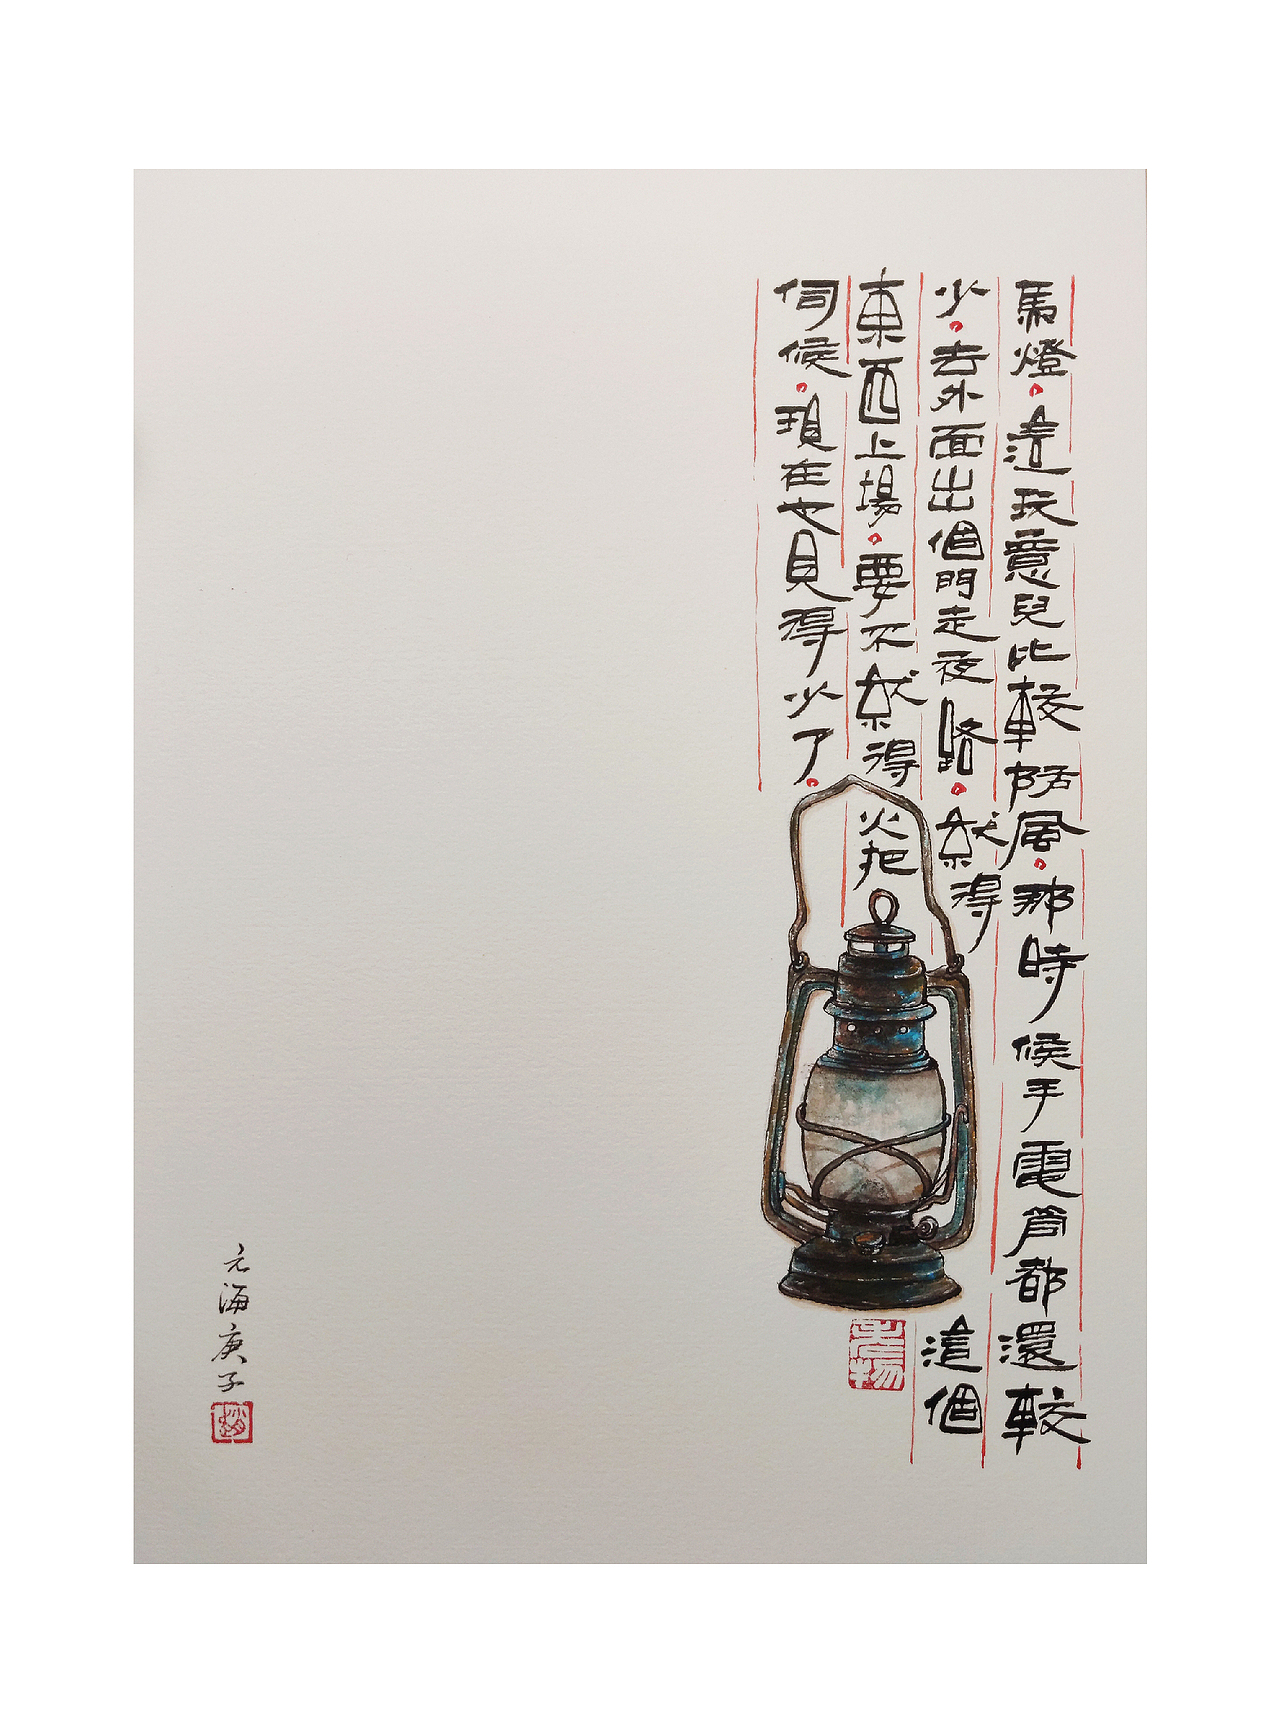 馬燈。這玩意兒比較防風。那時候手電筒都還較
少。去外面出個門走夜路。就得這個
東西上場。要不就得火把
伺候。現在也見得少了。
老物
元海庚子